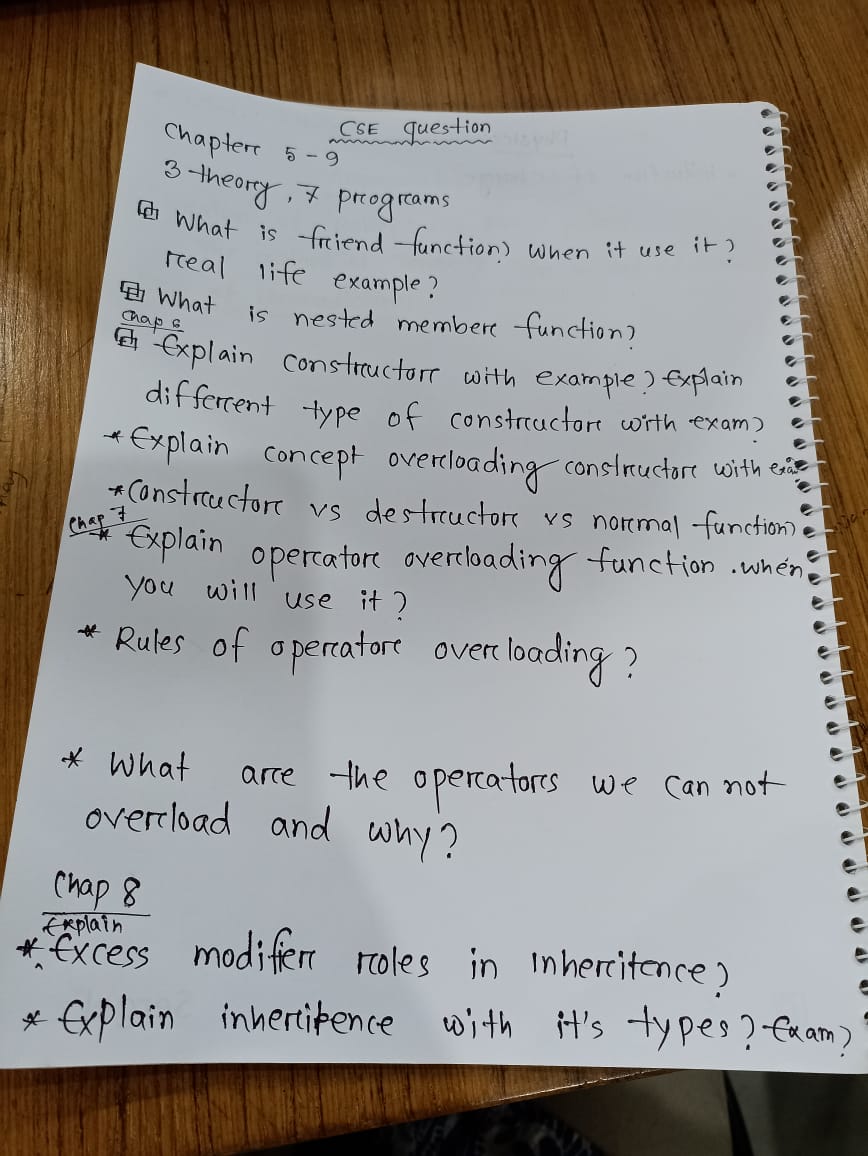 CSE question
Chapter 5-9
3-theory, 7 programs
What is friend function? when it use it?
real life example?
What is nested member function?
Chap 6
Explain constructor with example? Explain
different type of constructor with exam?
* Explain concept overloading constructor with exa
* Constructor vs destructor vs normal function?
Chap 7
* Explain operator overloading function. when
you will use it?
* Rules of operator overloading?
* What are the operators we can not
overload and why?
Chap 8
Explain
* Excess modifier roles in inheritence?
* Explain inheritence with it's types? Exam?